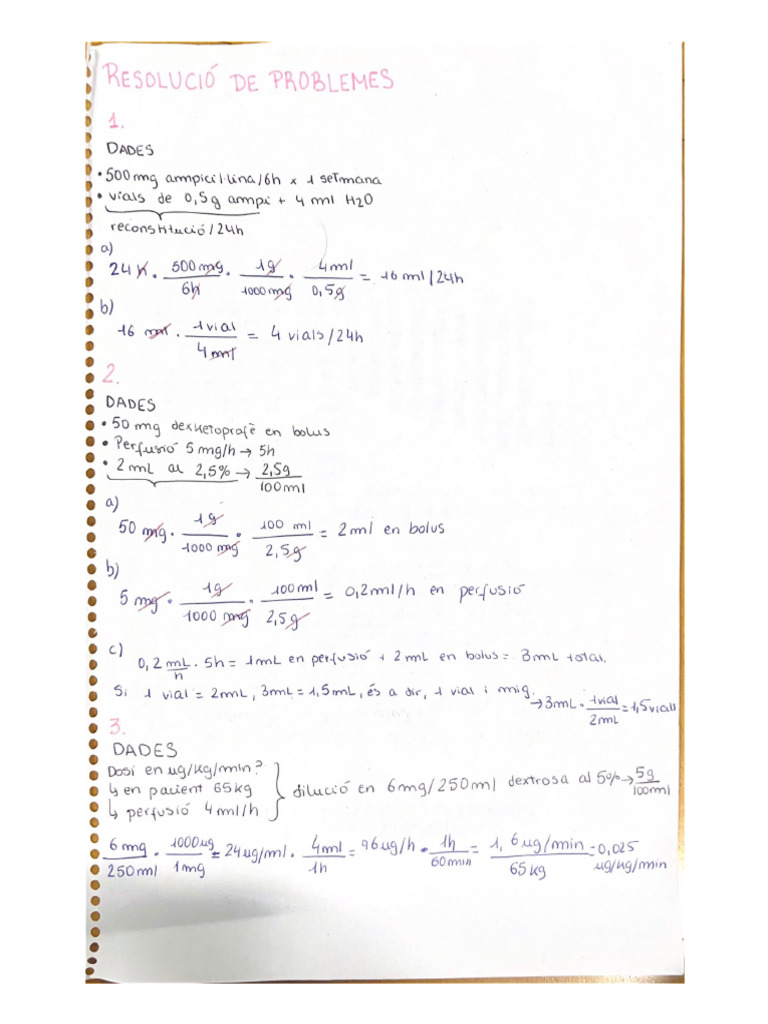 RESOLUCIÓ DE PROBLEMES
1.
DADES
• 500 mg ampicil·lina/6h x 1 setmana
• vials de 0,5g ampi + 4 ml H2O
reconstitució/24h
a)
24 h · 500 mg/6h · 1g/1000 mg · 4ml/0,5g = 16 ml/24h
b)
16 ml · 1 vial/4 ml = 4 vials/24h
2.
DADES
• 50 mg dexketoprofè en bolus
• Perfusió 5 mg/h → 5h
• 2 mL al 2,5% → 2,5g/100ml
a)
50 mg · 1g/1000 mg · 100 ml/2,5g = 2ml en bolus
b)
5 mg · 1g/1000 mg · 100ml/2,5g = 0,2ml/h en perfusió
c)
0,2 mL/h · 5h = 1mL en perfusió + 2 mL en bolus = 3mL total.
Si 1 vial = 2mL, 3mL = 1,5mL, és a dir, 1 vial i mig.
→ 3mL · 1vial/2mL = 1,5 vials
3.
DADES
Dosi en ug/kg/min?
↳ en pacient 65kg
↳ perfusió 4 ml/h
} dilució en 6mg/250ml dextrosa al 5% → 5g/100ml
6 mg/250 ml · 1000ug/1mg = 24ug/ml · 4ml/1h = 96ug/h · 1h/60min = 1,6ug/min/65kg = 0,025 ug/kg/min